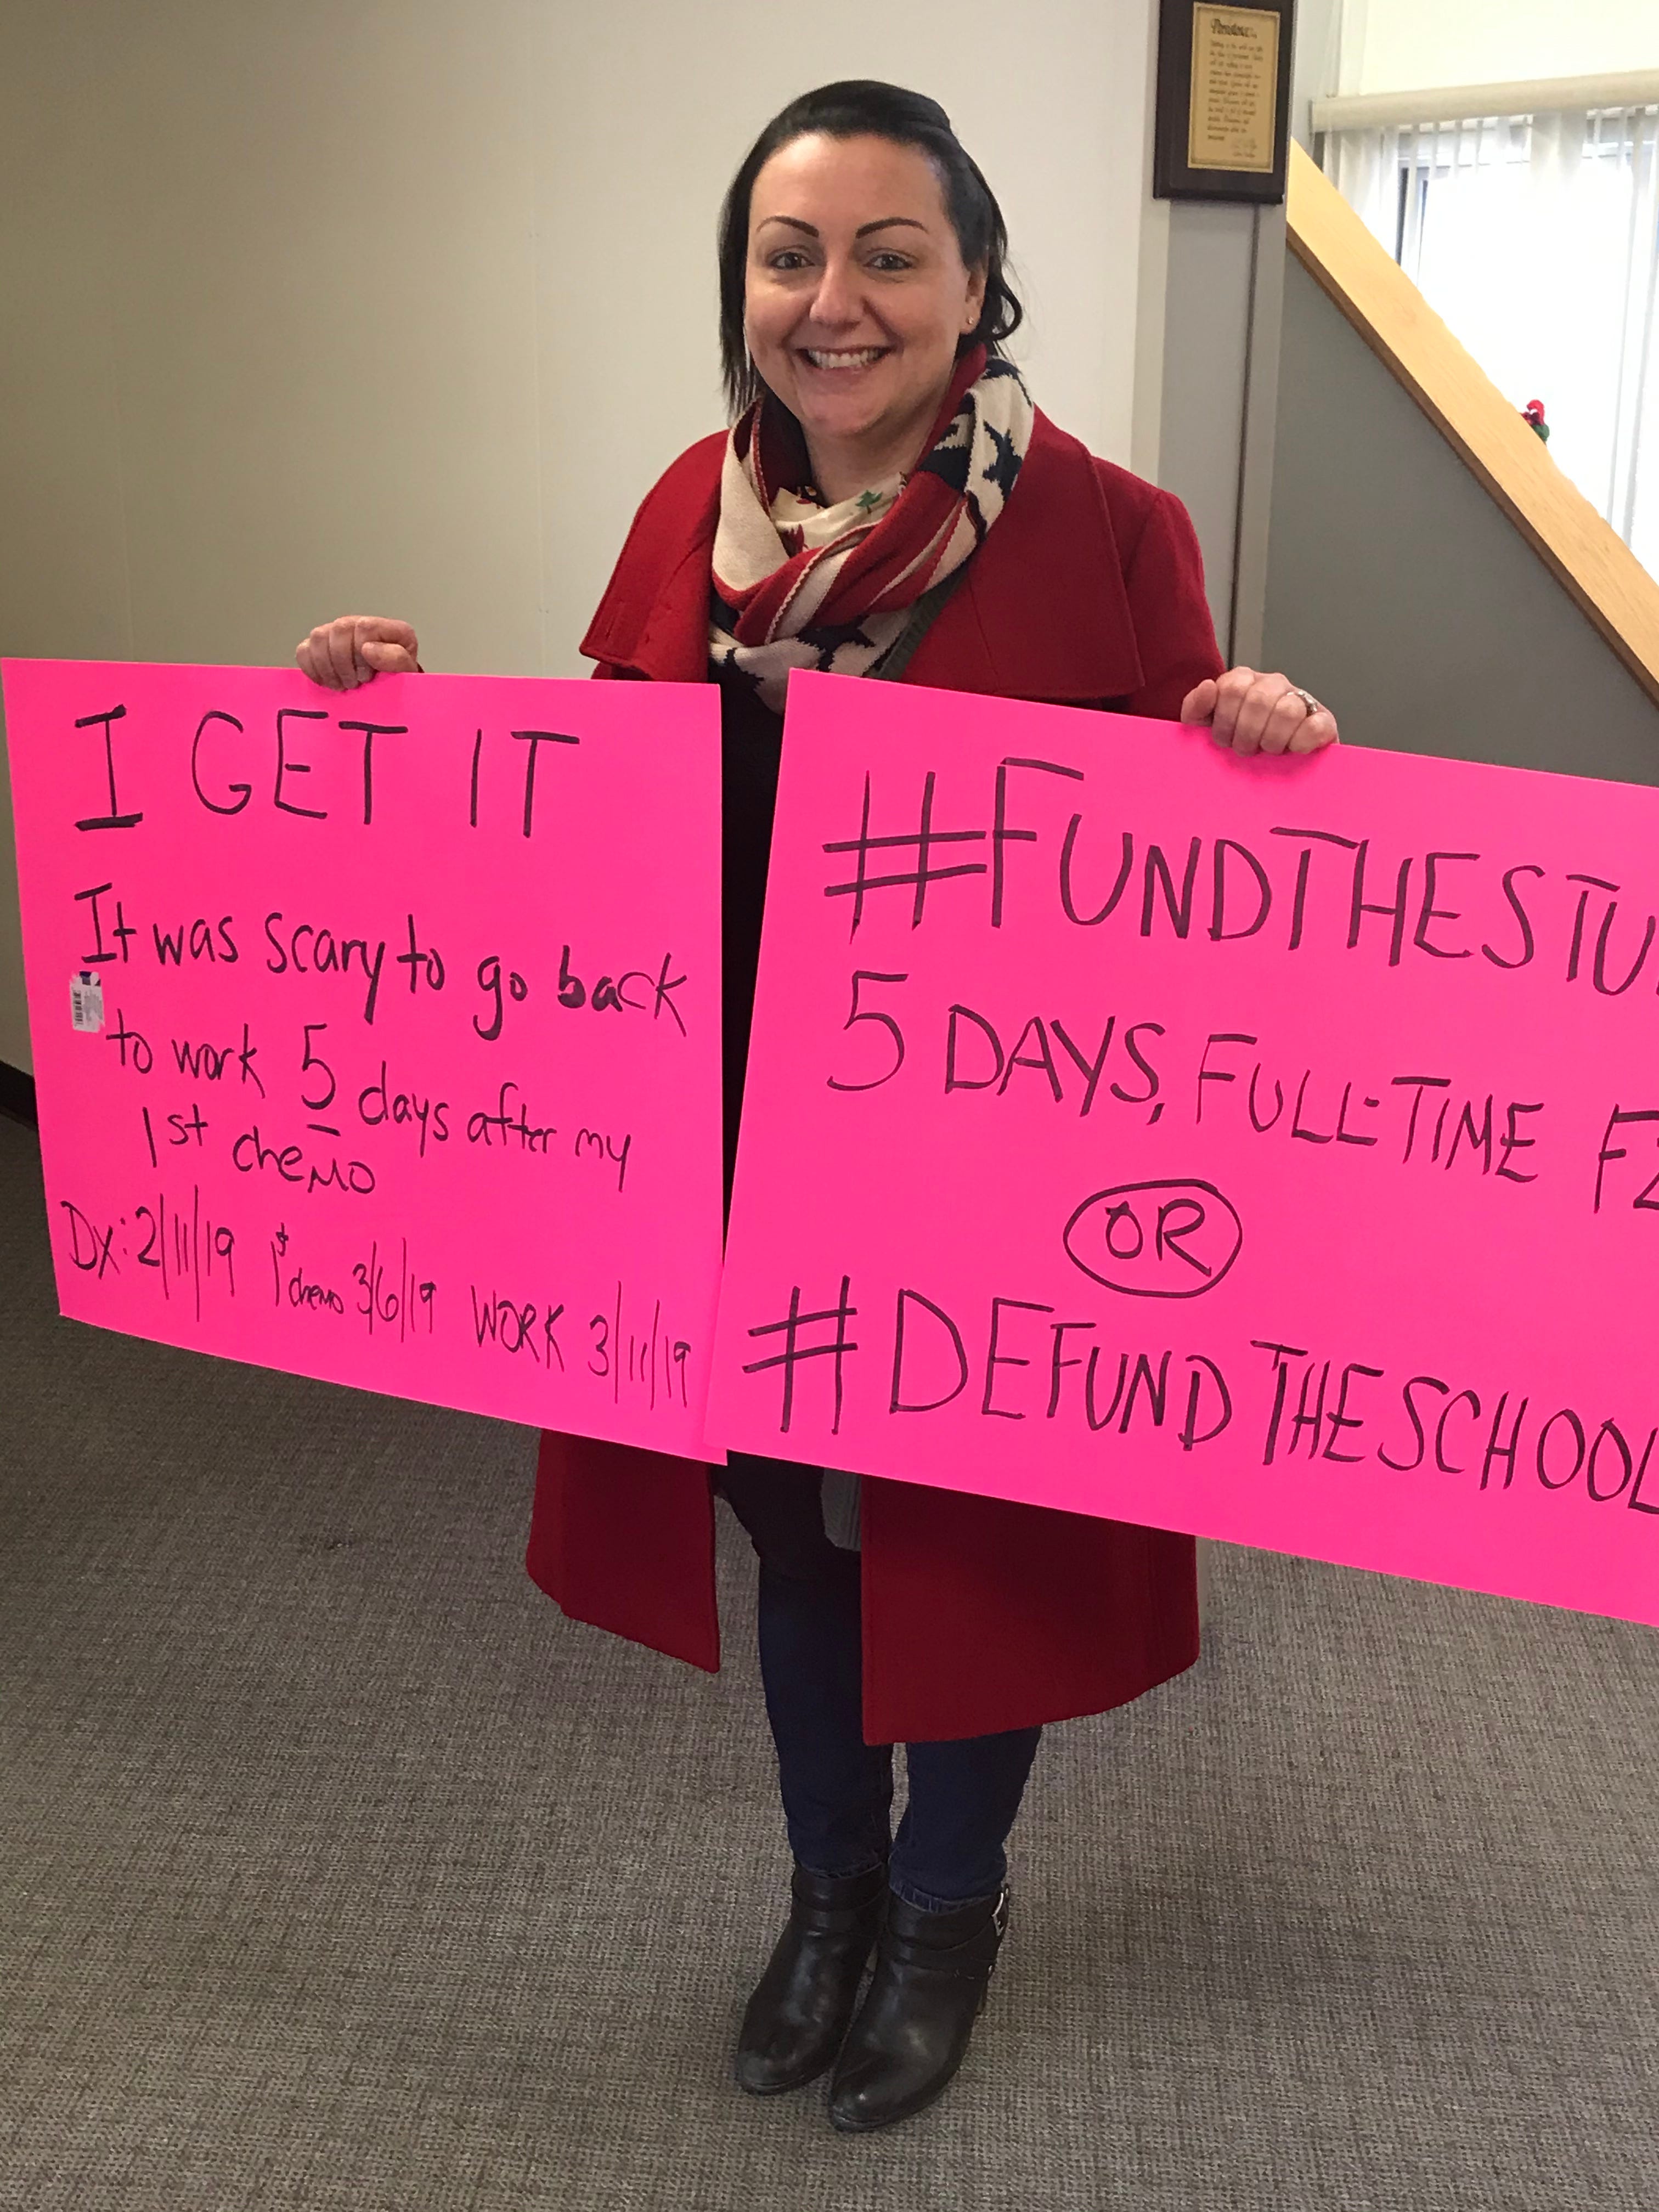 Persistence
I GET IT
It was scary to go back
to work 5 days after my
1st chemo
Dx: 2/11/19 1st chemo 3/6/19 WORK 3/11/19
#FUNDTHESTU
5 DAYS, FULL-TIME F2
OR
#DEFUNDTHESCHOOL